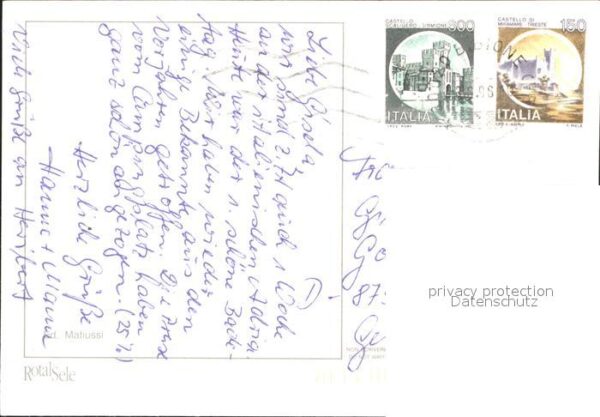 Liebe Gisela
wir sind z. Zt auch 1 Woche
an der italienischen Adria.
Heute war der 1. schöne Bade-
tag. Wir haben wieder
einige Bekannte aus den
Vorjahren getroffen. Die Preise
vom Campingplatz haben
ganz schön angezogen. (25%)
Herzliche Grüße
Hanne + Manne
Viele Grüße an Heribert
CASTELLO SCALIGERO · SIRMIONE
800
ITALIA
CASTELLO DI MIRAMARE TRIESTE
150
ITALIA
87
privacy protection
Datenschutz
Ed. Matiussi
RotalSele